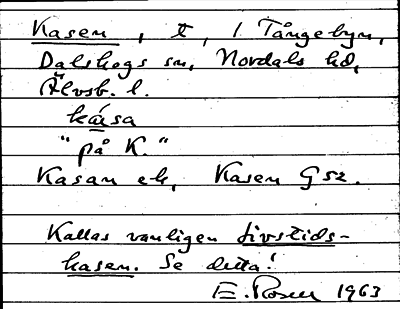 Kasen, t, 1 Tångebyn,
Dalskogs sn, Nordals hd,
Älvsb. l.
kása
"på K."
Kasan ek, Kasen GS2.
Kallas vanligen livstids-
kasen. Se detta!
E. Rosen 1963